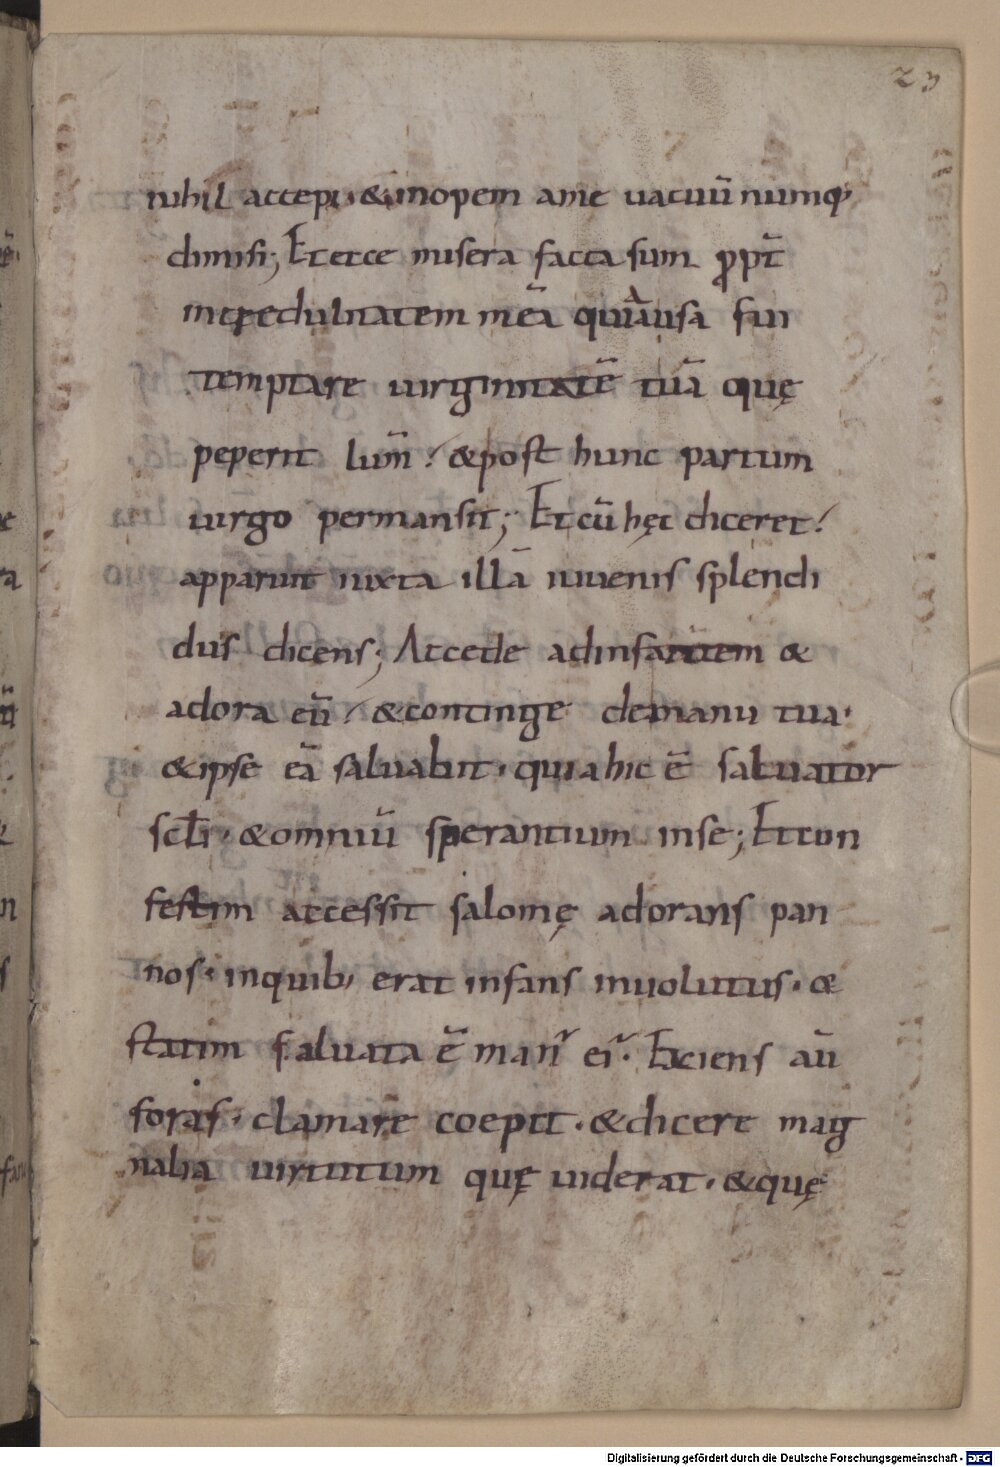 23
nihil accepi· & inopem ame uacuū numq·
dimisi; Et ecce misera facta sum ꝓpt̄
incredulitatem mēa quia ausa fui
temptare uirginitatē tuā quę
peperit lum̄· & post hunc partum
uirgo permansit; Et cū hęc diceret·
apparuit iuxta illā iuuenis splendi
dus dicens; Accede adinfantem &
adora eū· & continge demanu tua·
& ipse eā saluabit· quia hic ē saluator
scl̄i· & omniū sperantium inse; Et con
festim accessit salomę adorans pan
nos· inquib; erat infans inuolutus· &
statim saluata ē man' ei'· Exiens aū
foras· clamare coepit· & dicere mag
nalia uirtutum quę uiderat· & quę
Digitalisierung gefördert durch die Deutsche Forschungsgemeinschaft - DFG